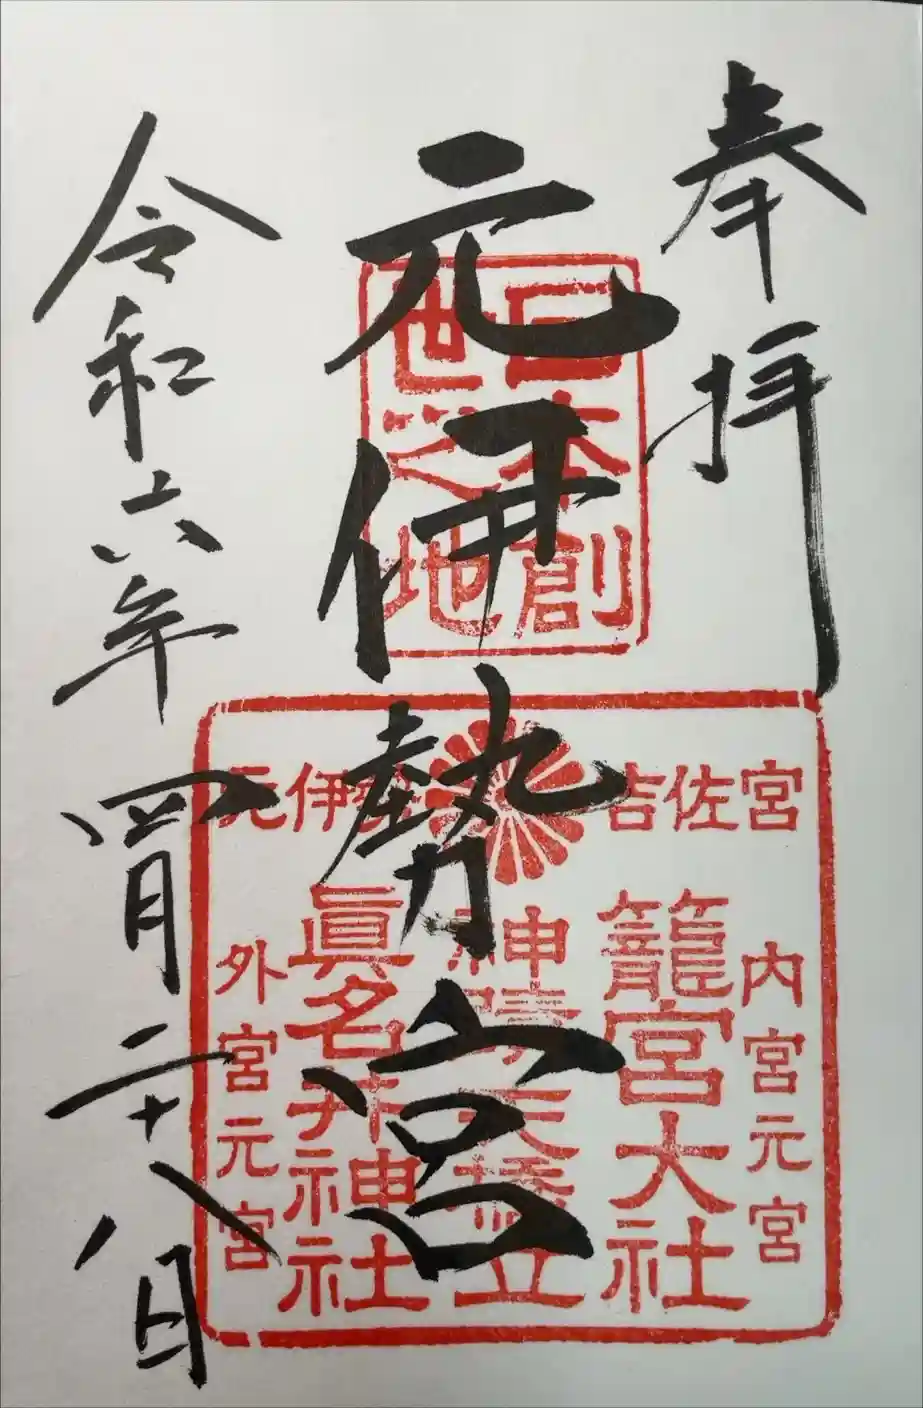 奉拝
日本創
世之地
元伊勢宮
元伊勢 吉佐宮
内宮元宮
籠宮大社
神勝天橋立
眞名井神社
外宮元宮
令和六年四月二十八日